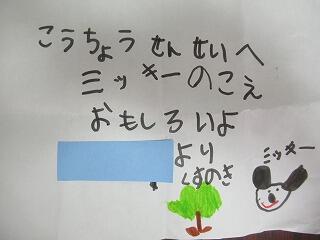 こうちょうせんせいへ
ミッキーのこえ
おもしろいよ
より
くすのき
ミッキー